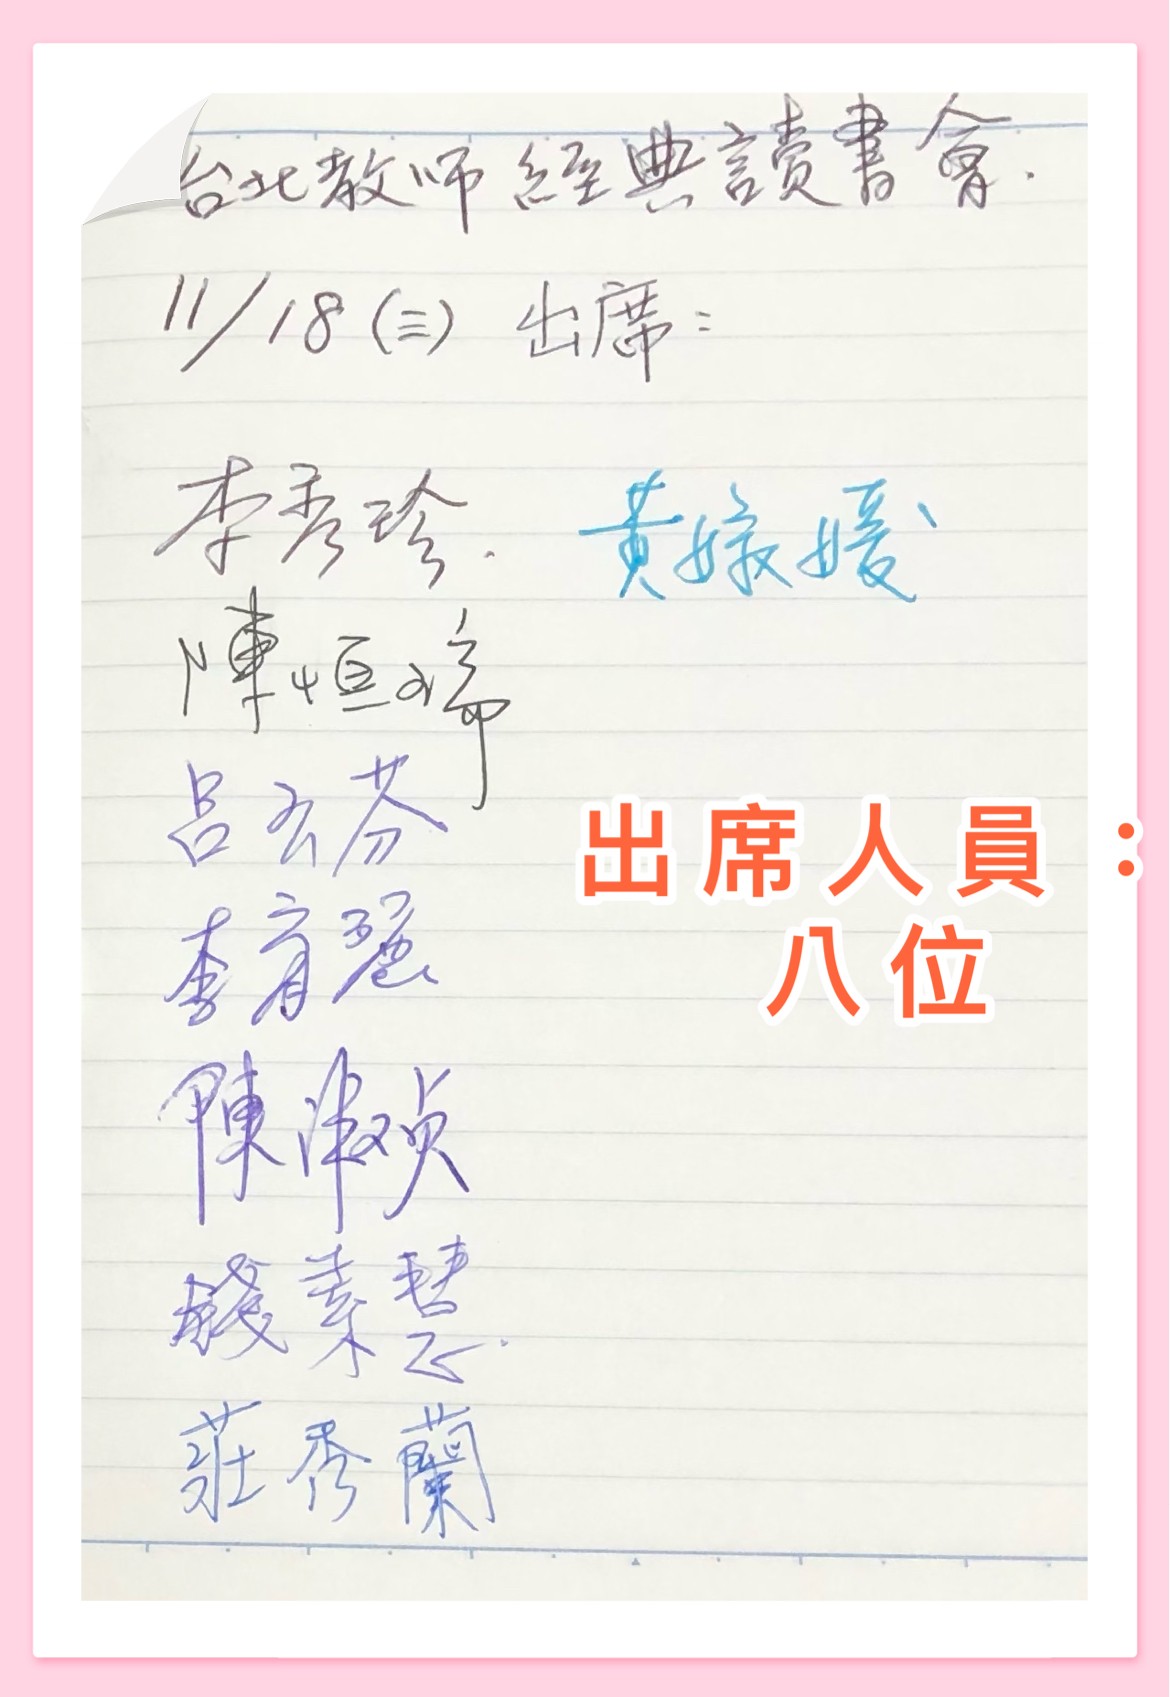 台北教師經典讀書會.
11/18(三) 出席:
李秀珍.
黃媺媛
陳恒瑞
呂玄芬
李育麗
陳淑貞
錢素慧.
莊秀蘭
出席人員:
八位